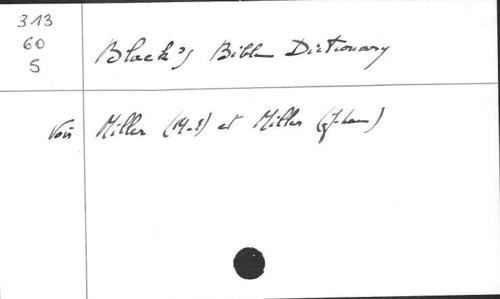 313
60
5
Black's Bible Dictionary
Voir Miller (M-S) et Miller (J-Lane)